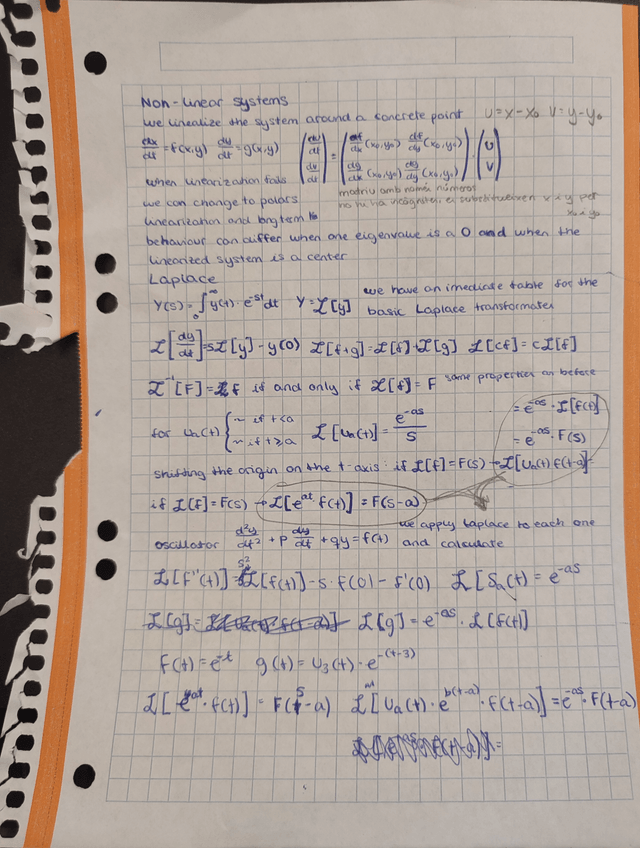 Non-linear systems
we linealize the system around a concrete point U=x-x₀ V=y-y₀
dx/dt=f(x,y) dy/dt=g(x,y) (du/dt dv/dt) = (df/dx(x₀,y₀) df/dy(x₀,y₀) dg/dx(x₀,y₀) dg/dy(x₀,y₀)) · (U V)
when linearization fails matriu amb només números
we can change to polars no hi ha incògnites, es substitueixen x i y per
linearization and longterm x₀ i y₀
behaviour can differ when one eigenvalue is a 0 and when the
linearized system is a center
Laplace
Y(s)=∫₀^∞ y(t)·e^-st dt Y=ℒ[y] we have an imediate table for the
basic Laplace transformates
ℒ[dy/dt]=sℒ[y]-y(0) ℒ[f+g]=ℒ[f]+ℒ[g] ℒ[cf]=cℒ[f]
ℒ⁻¹[F]=f if and only if ℒ[f]=F same properties as before
for uₐ(t) {~ if t<a ~ if t≥a ℒ[uₐ(t)]=e^-as/s =e^-as·ℒ[f(t)]
=e^-as·F(s)
shifting the origin on the t-axis: if ℒ[f]=F(s)→ℒ[uₐ(t)f(t-a)]=
if ℒ[f]=F(s)→ℒ[e^at·f(t)]=F(s-a)
oscillator d²y/dt²+p dy/dt+qy=f(t) we apply Laplace to each one
and calculate
ℒ[f''(t)]=s²ℒ[f(t)]-s·f(0)-f'(0) ℒ[δₐ(t)=e^-as
ℒ[g]= ℒ[g]=e^-as·ℒ[f(t)]
f(t)=e^-t g(t)=u₃(t)·e^-(t-3)
ℒ[e^at·f(t)]=F(s-a) ℒ[uₐ(t)·e^b(t-a)·f(t-a)]=e^-as·F(t-a)